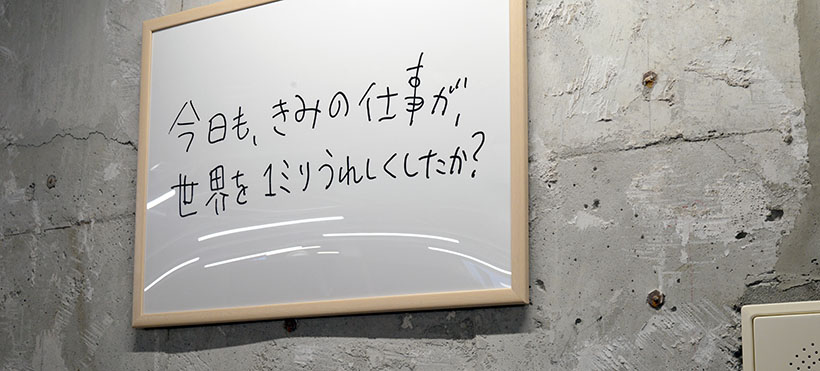 今日も、きみの仕事が、
世界を1ミリうれしくしたか?